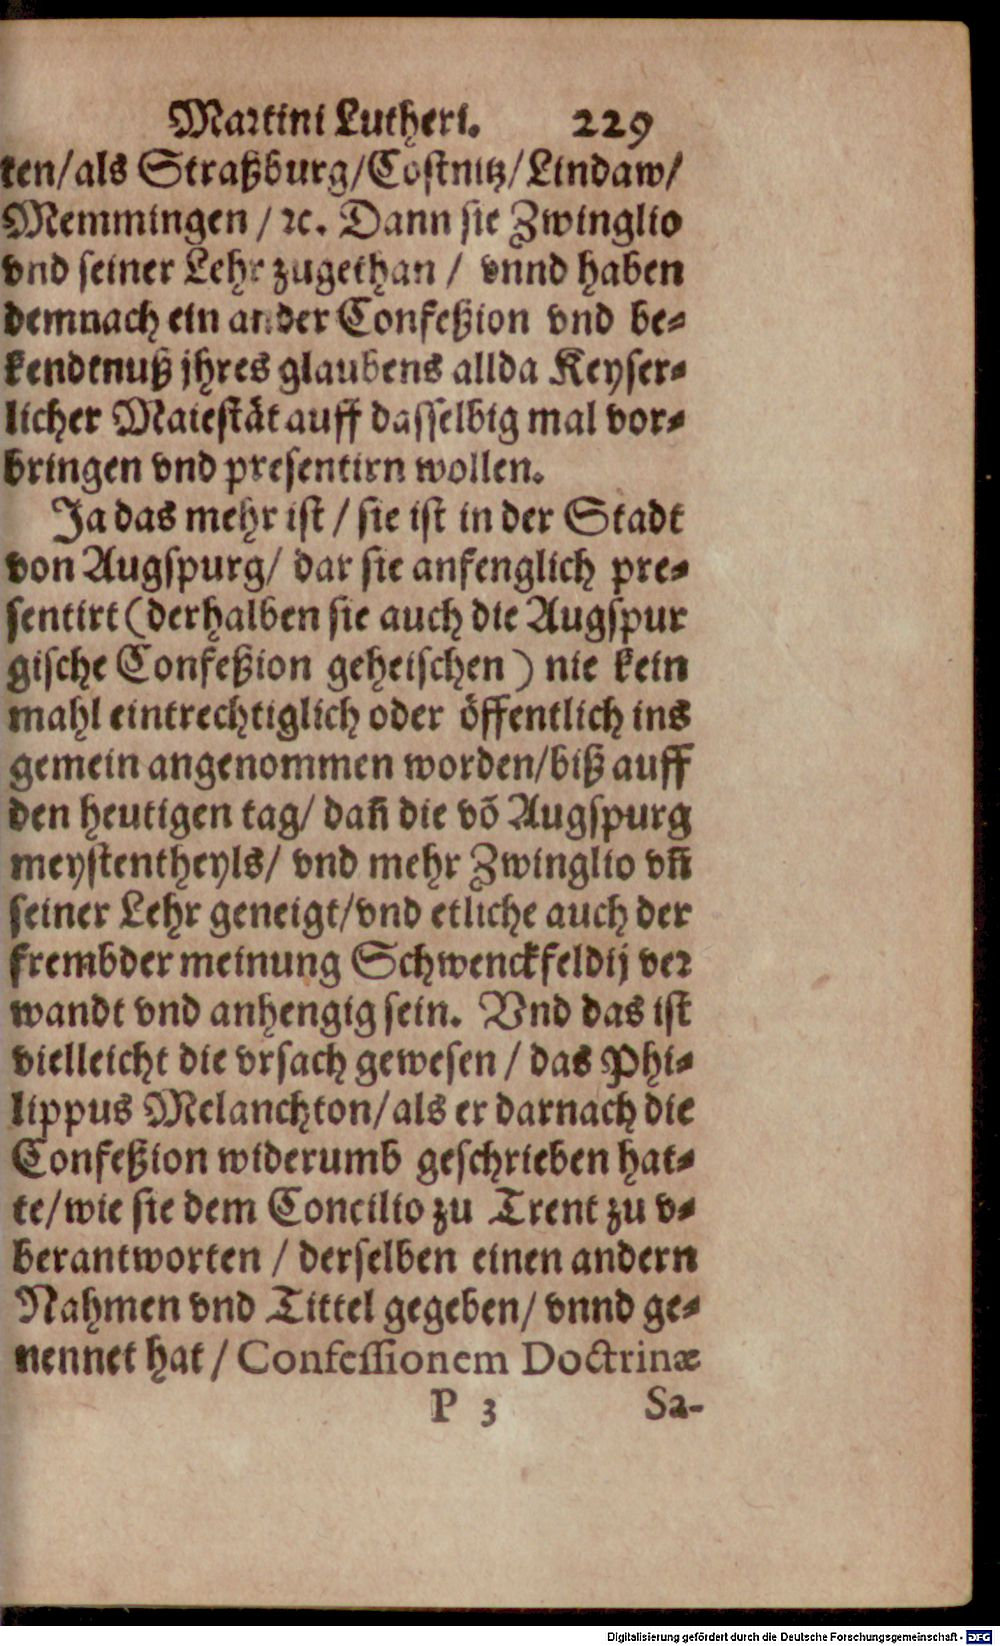 Martini Lutheri. 229
ten/als Straßburg/Costnitz/Lindaw/
Memmingen / ꝛc. Dann sie Zwinglio
vnd seiner Lehr zugethan / vnnd haben
demnach ein ander Confeßion vnd be-
kendtnuß jhres glaubens allda Keyser-
licher Maiestät auff dasselbig mal vor-
bringen vnd presentirn wollen.
Ja das mehr ist / sie ist in der Stadt
von Augspurg/ dar sie anfenglich pre-
sentirt (derhalben sie auch die Augspur
gische Confeßion geheischen) nie kein
mahl eintrechtiglich oder öffentlich ins
gemein angenommen worden/biß auff
den heutigen tag/ dañ die võ Augspurg
meystentheyls/ vnd mehr Zwinglio vñ
seiner Lehr geneigt/vnd etliche auch der
frembder meinung Schwenckfeldij ver
wandt vnd anhengig sein. Vnd das ist
vielleicht die vrsach gewesen / das Phi-
lippus Melanchton/als er darnach die
Confeßion widerumb geschrieben hat-
te/wie sie dem Concilio zu Trent zu v-
berantworten / derselben einen andern
Nahmen vnd Tittel gegeben/ vnnd ge-
nennet hat / Confessionem Doctrinæ
P 3 Sa-
Digitalisierung gefördert durch die Deutsche Forschungsgemeinschaft - DFG